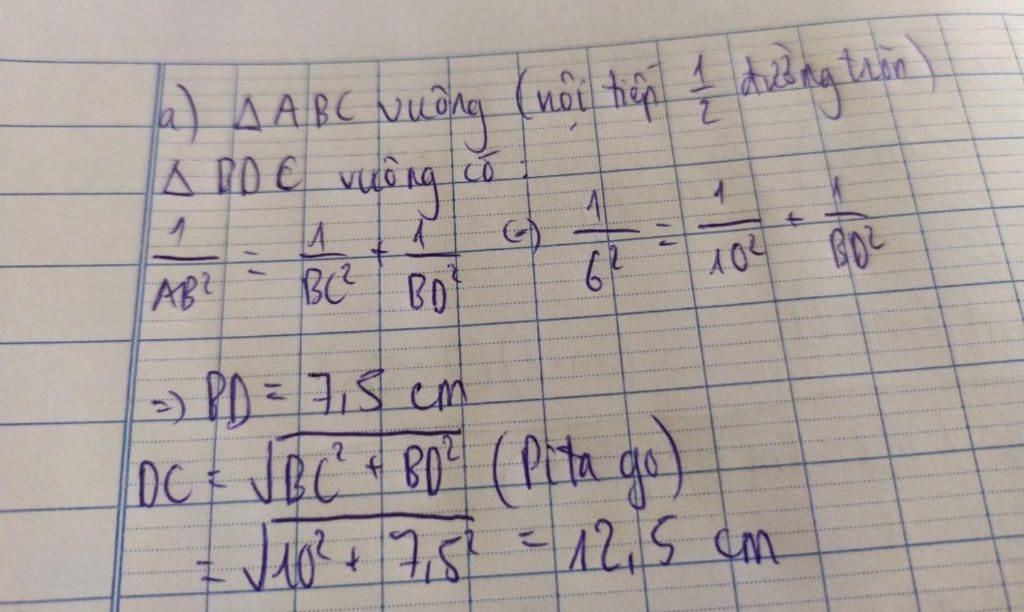 a) Δ ABC vuông (nội tiếp 1/2 đường tròn)
Δ BDC vuông có:
1/AB² = 1/BC² + 1/BD² (=) 1/6² = 1/10² + 1/BD²
=) BD = 7,5 cm
DC = √(BC² + BD²) (Pita go)
= √(10² + 7,5²) = 12,5 cm